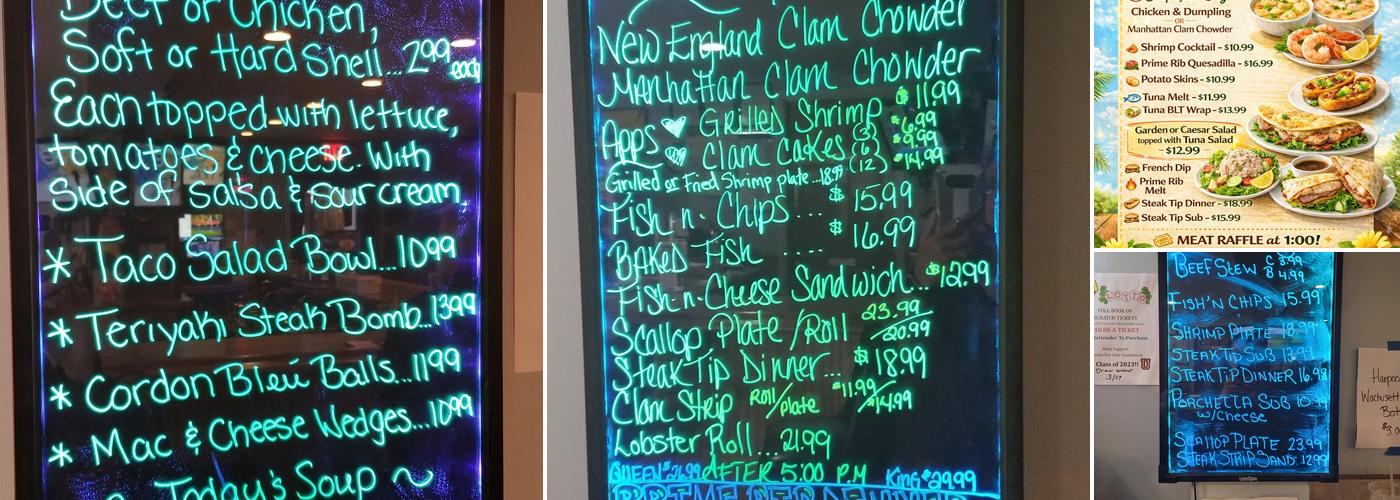 Beef or Chicken,
Soft or Hard Shell...2.99 each
Each topped with lettuce,
tomatoes & cheese. With
side of salsa & sour cream,
* Taco Salad Bowl...10.99
* Teriyaki Steak Bomb...13.99
* Cordon Bleu Balls...11.99
* Mac & Cheese Wedges...10.99
Today's Soup ~
New England Clam Chowder
Manhattan Clam Chowder
Apps Grilled Shrimp $11.99
Clam Cakes (3) $6.99
(6) $9.99
(12) $14.99
Grilled or Fried Shrimp plate...18.99
Fish n. Chips .... $15.99
Baked Fish .... $16.99
Fish-n-Cheese Sandwich... $12.99
Scallop Plate/Roll 23.99/20.99
Steak Tip Dinner... $18.99
Clam Strip Roll/plate $11.99/$14.99
Lobster Roll... 21.99
QUEEN $26.99 AFTER 5:00 P.M King $29.99
Chicken & Dumpling
OR
Manhattan Clam Chowder
Shrimp Cocktail – $10.99
Prime Rib Quesadilla – $16.99
Potato Skins – $10.99
Tuna Melt – $11.99
Tuna BLT Wrap – $13.99
Garden or Caesar Salad
topped with Tuna Salad
– $12.99 –
French Dip
Prime Rib
Melt
Steak Tip Dinner – $18.99
Steak Tip Sub – $15.99
MEAT RAFFLE at 1:00!
BEEF STEW C 3.99
B 4.99
FISH'N CHIPS 15.99
SHRIMP PLATE 18.99
STEAK TIP SUB 13.99
STEAK TIP DINNER 16.99
PORCHETTA SUB 10.99
w/cheese
SCALLOP PLATE 23.99
STEAK STRIP SAND. 12.99
LOTTO
FULL BOOK OF
SCRATCH TICKETS
$10.00 A TICKET
Bartender To Purchase
Help Support
Class of 2023!!
3/17
Harpoo
Wachusett
Bot